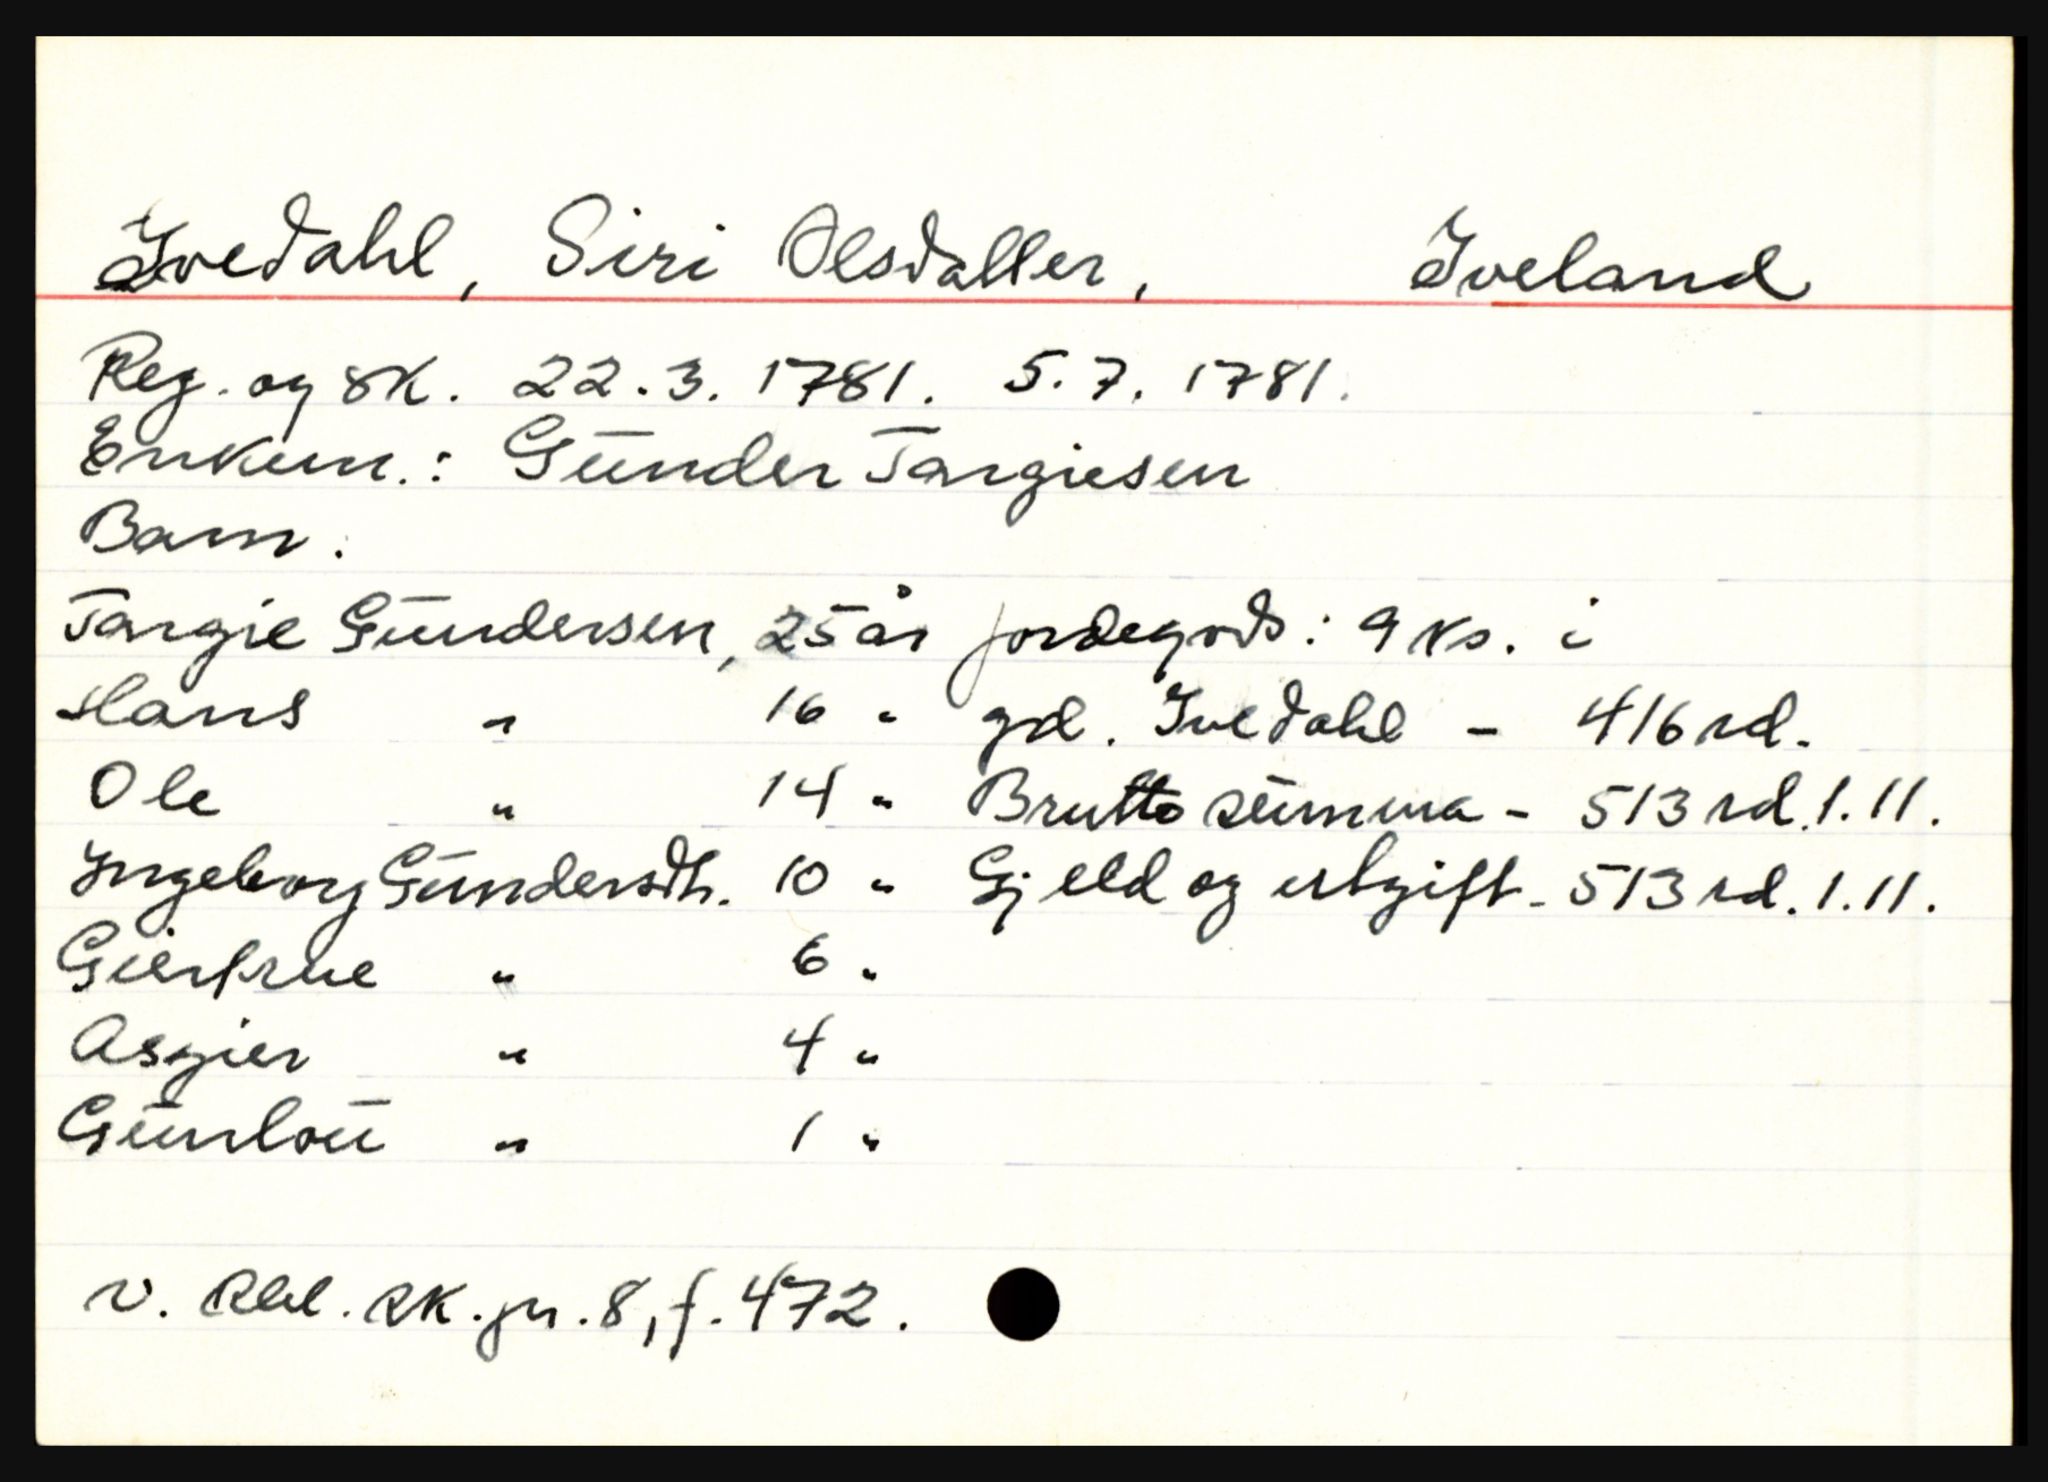 Ivedahl, Siri Olsdatter, Iveland
Reg. og sk. 22.3. 1781. 5.7. 1781.
Enkem.: Gunder Targiesen
Barn:
Targie Gundersen, 25 år jordegods: 9 ks. i
Hans " 16 " gd. Ivedahl - 416 rd.
Ole " 14 " Brutto summa - 513 rd. 1.11.
Ingeborg Gundersdtr. 10 " Gjeld og utgift - 513 rd. 1.11.
Gierkrue " 6 "
Asgier " 4 "
Gunlou " 1 "
v. Rbl. sk. pr. 8, f. 472.